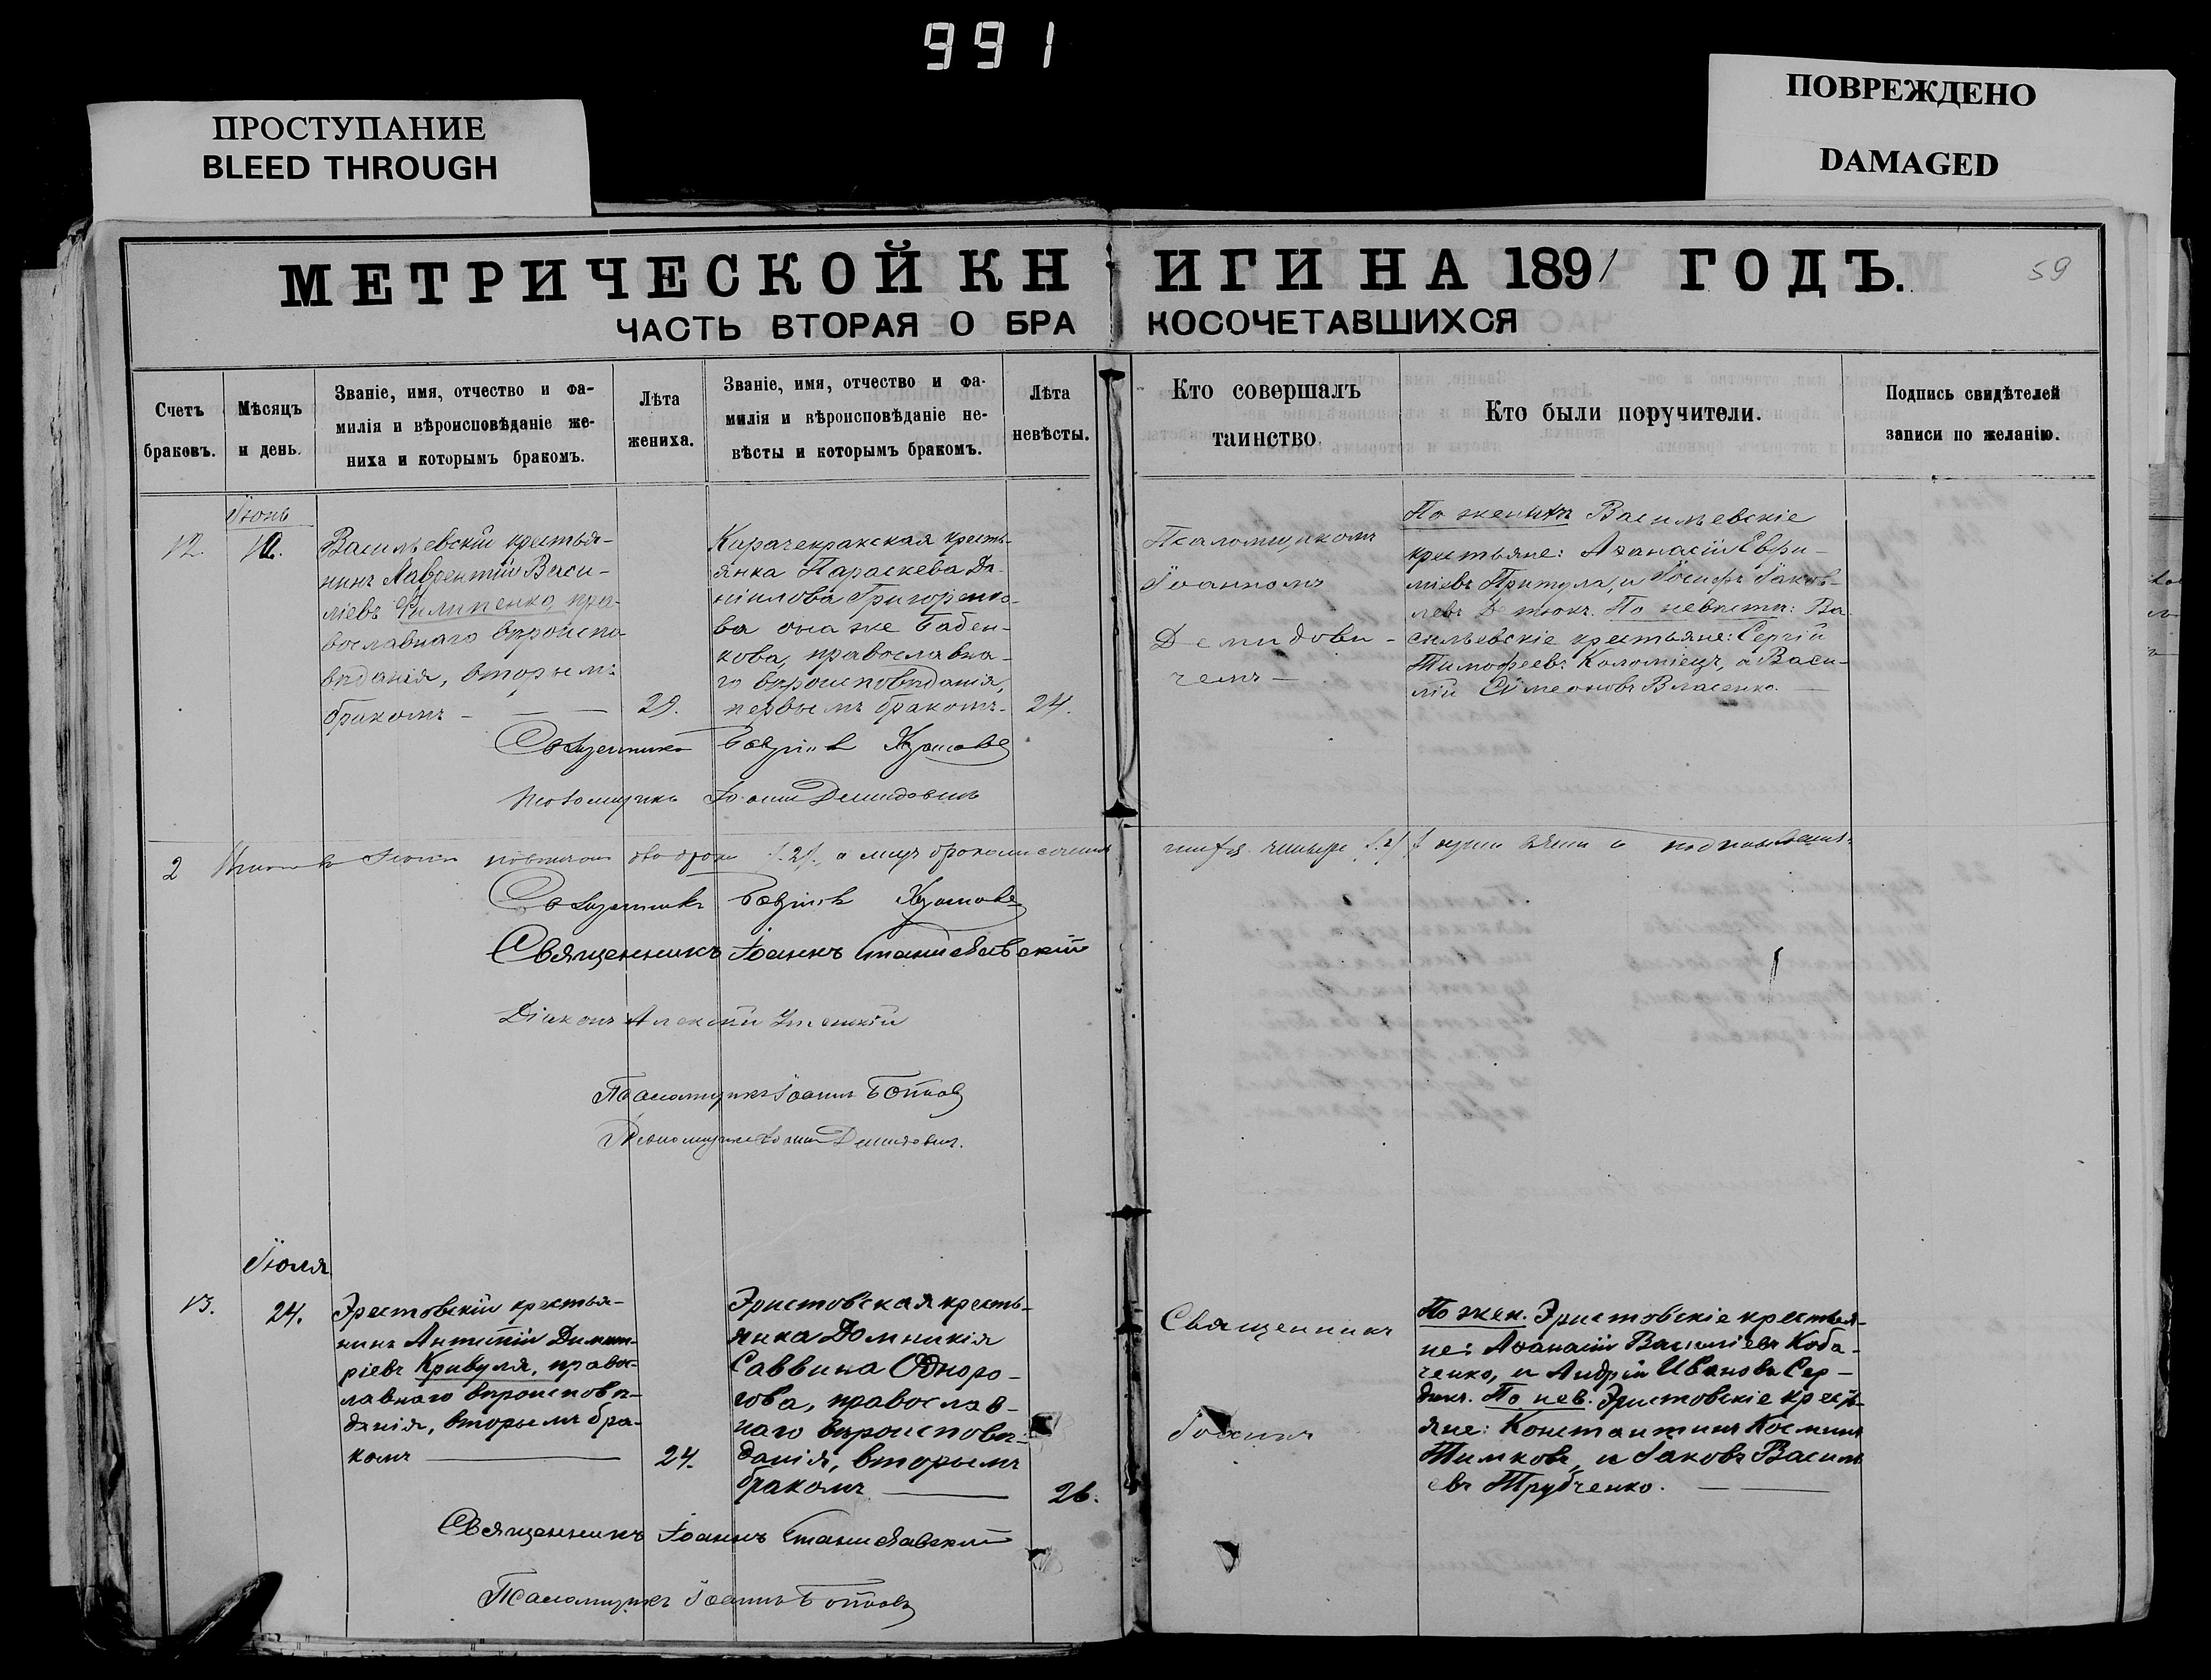 991
ПРОСТУПАНИЕ
BLEED THROUGH
ПОВРЕЖДЕНО
DAMAGED
МЕТРИЧЕСКОЙ КНИГИ НА 1891 ГОДЪ.
59
ЧАСТЬ ВТОРАЯ О БРАКОСОЧЕТАВШИХСЯ
Счетъ
браковъ.
Мѣсяцъ
и день.
Званіе, имя, отчество и фа-
милія и вѣроисповѣданіе же-
ниха и которымъ бракомъ.
Лѣта
жениха.
Званіе, имя, отчество и фа-
милія и вѣроисповѣданіе не-
вѣсты и которымъ бракомъ.
Лѣта
невѣсты.
Кто совершалъ
таинство.
Кто были поручители.
Подпись свидѣтелей
записи по желанію.
Іюнь
12.
Васильевскій крестья-
нинъ Лаврентій Васи-
ліевъ Филипенко, пра-
вославнаго вѣроиспо-
вѣданія, вторымъ
бракомъ
29.
Карачекракская кресть-
янка Параскева Да-
ніилова Григоренко-
ва она же Бабен-
кова, православна-
го вѣроисповѣданія,
первымъ бракомъ.
24.
Псаломщикомъ
Іоанномъ
Демидови-
чемъ
По женихѣ Васильевскіе
крестьяне: Аѳанасій Евфи-
міевъ Притула, и Іосифъ Іаков-
левъ Детюкъ. По невѣстѣ: Ва-
сильевскіе крестьяне: Сергій
Тимофеевъ Коломіецъ, а Васи-
лій Симеоновъ Власенко.
Священникъ
Псаломщикъ Іоаннъ Демидовичъ
2
Священникъ
Священникъ Іоаннъ Станиславскій
Діаконъ Алексій
Псаломщикъ Іоаннъ
Псаломщикъ Іоаннъ Демидовичъ.
Іюля
13.
24.
Эристовскій крестья-
нинъ Антипій Димит-
ріевъ Кривуля, правос-
лавнаго вѣроисповѣ-
данія, вторымъ бра-
комъ
24.
Эристовская кресть-
янка Домникія
Саввина Одноро-
гова, православ-
наго вѣроисповѣ-
данія, вторымъ
бракомъ
26.
Священникъ
Іоаннъ
По жен. Эристовскіе крестья-
не: Аѳанасій Василіевъ Коба-
ченко, и Андрій Ивановъ Сер-
дюкъ. По нев. Эристовскіе кресть-
яне: Константинъ Косминъ
Тимковъ, и Іаковъ Василь
евъ Трубченко.
Священникъ Іоаннъ Станиславскій
Псаломщикъ Іоаннъ